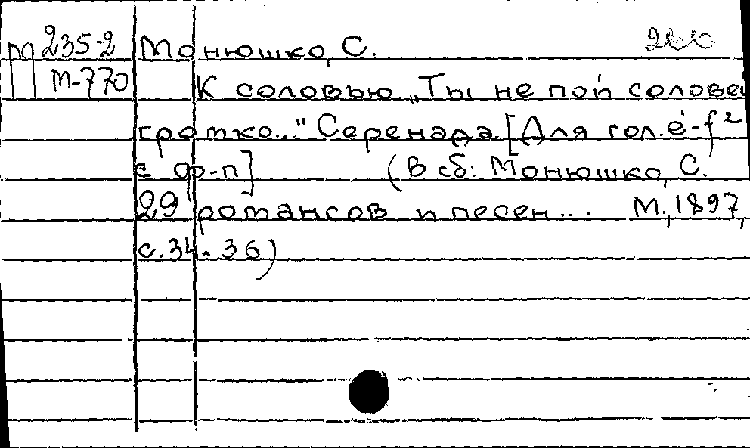 М 235-2 Монюшко, С.
М-770 К соловью „Ты не пой соловей
громко..." Серенада. [Для гол. e'-f²
с ф-п] (В сб: Монюшко, С.
29 романсов и песен... М., 1897,
с. 34-36)